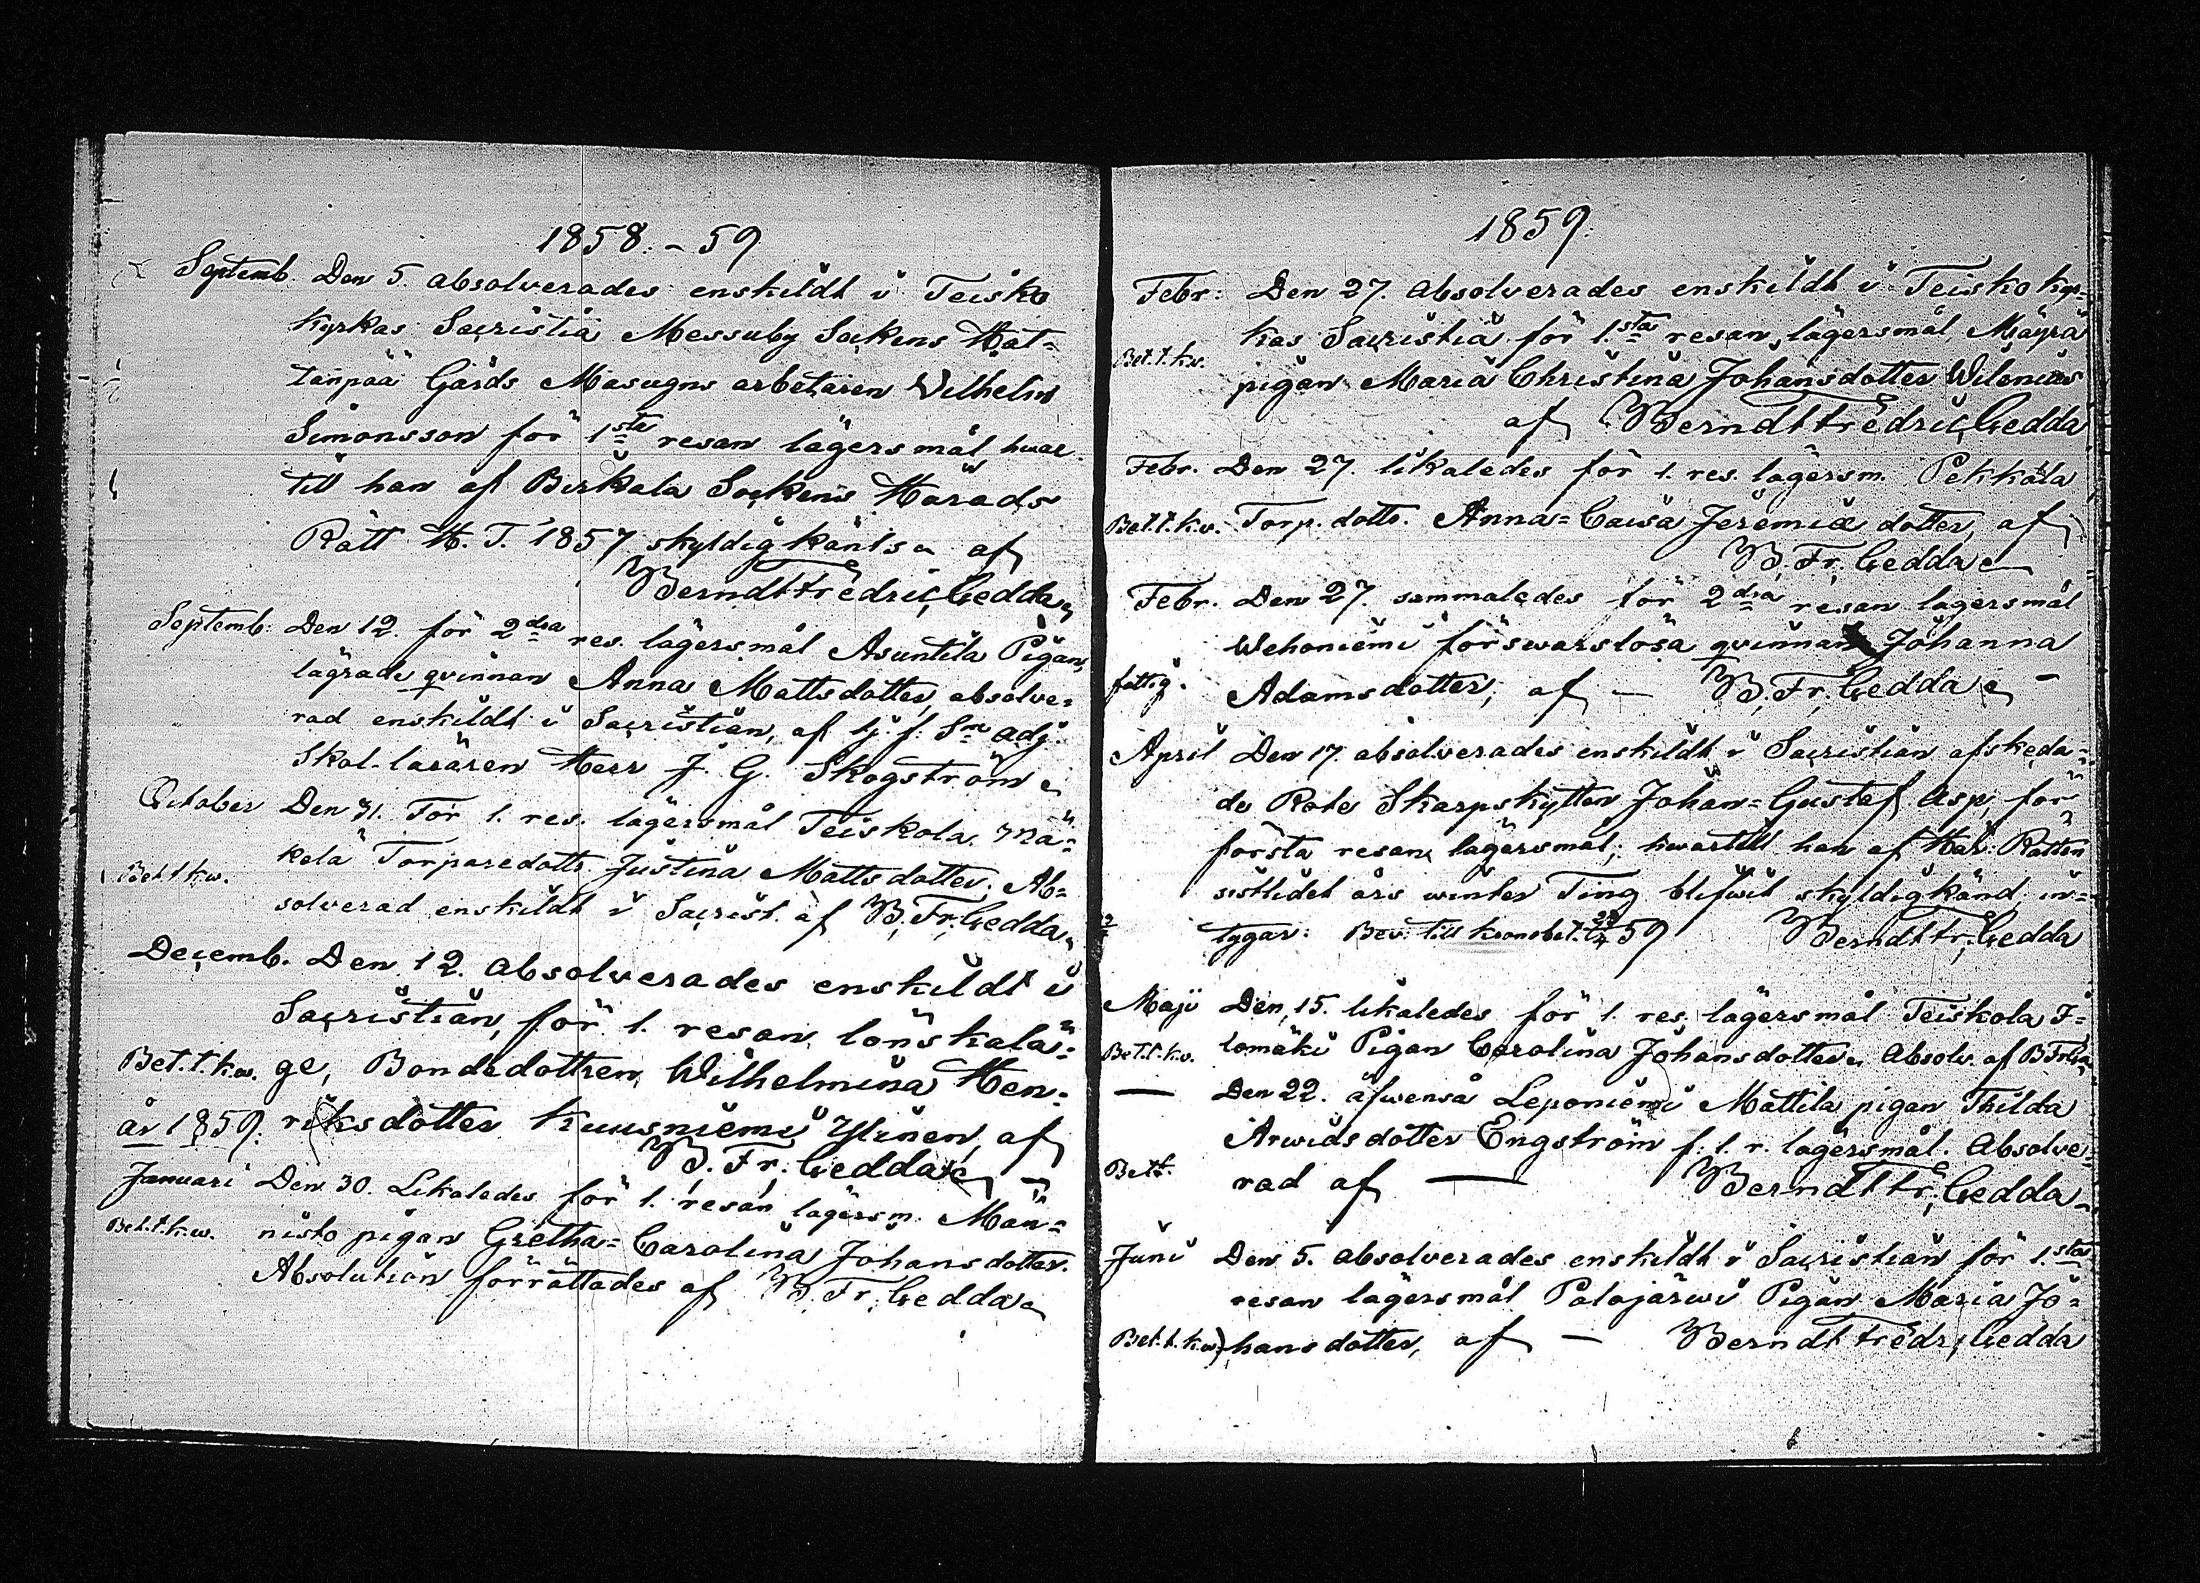 1858. - 59
Septemb. Den 5. absolverades enskildt i Teisko
kyrkas Sacristia Messuby Sockens Hat=
tanpää Gårds Masugns arbetaren Wilhelm
Simonsson för 1ste resan lägersmål, hwar=
till han af Birkala Sockens Härads
Rätt H. T. 1857 skyldig känts af
Berndt Fredric Gedda
Septemb: Den 12. för 2dra res. lägersmål Asuntila Pigan,
lägrade qvinnan Anna Mattsdotter, absolve=
rad enskildt i Sacristian, af tj. f. Sm adj.
Skol-läraren Herr J. G. Skogström
October Den 31. För 1. res. lägersmål Teiskola
kelä Torparedottr. Justina Mattsdotter. Ab=
Bet. t. k. w.
solverad enskildt i Sacrist. af B. Fr. Gedda
Decemb. Den 12. absolverades enskildt i
Sacristian, för 1. resan lönskalä=
Bet. t. k. w. ge, Bondedottren Wilhelmina Hen=
år 1859. riksdotter Kuusniemi Ylinen, af
B. Fr. Gedda
Januari Den 30. Likaledes för 1. resan lägersm. Män=
Bet. t. k. w. nistö pigan Gretha=Carolina Johansdotter.
Absolution förrättades af B. Fr. Gedda
1859.
Febr: Den 27. absolverades enskildt i Teisko kyr=
kas Sacristia för 1.sta resan lägersmål, Mäyrä
Bet. t. k. w.
pigan Maria Christina Johansdotter Wilenius
af Berndt Fredric Gedda
Febr. Den 27. likaledes för 1. res. lägersm. Pekkala
Bet. t. k. w. Torp. dottr. Anna=Caisa Jeremiæ dotter, af
B. Fr. Gedda
Febr. Den 27. sammaledes för 2dra resan lägersmål
Wehoniemi förswarslösa qvinnan Johanna
fattig. Adamsdotter, af — B. Fr. Gedda —
April Den 17. absolverades enskildt i Sacristian afskeda=
de Rote Skarpskytten Johan=Gustaf Asp, för
första resan lägersmål; hwartill han af Här. Rätten
sistlidet års winter Ting blifwit skyldigkänd, in=
tygar: Bev. till kronobet. 59 Berndt Fr. Gedda
Maji Den 15. likaledes för 1. res. lägersmål Teiskola I=
Bet. t. k. w. lomäki Pigan Carolina Johansdotter. Absolv. af
— Den 22. äfwenså Leponiemi Mattila pigan Thilda
Arwidsdotter Engström f. 1. r. lägersmål. Absolve=
Bett. rad af — Berndt Fr. Gedda
Juni Den 5. absolverades enskildt i Sacristian för 1.sta
resan lägersmål Palojärwi Pigan Maria Jo=
Bet. t. k. w) hansdotter, af — Berndt Fredr. Gedda